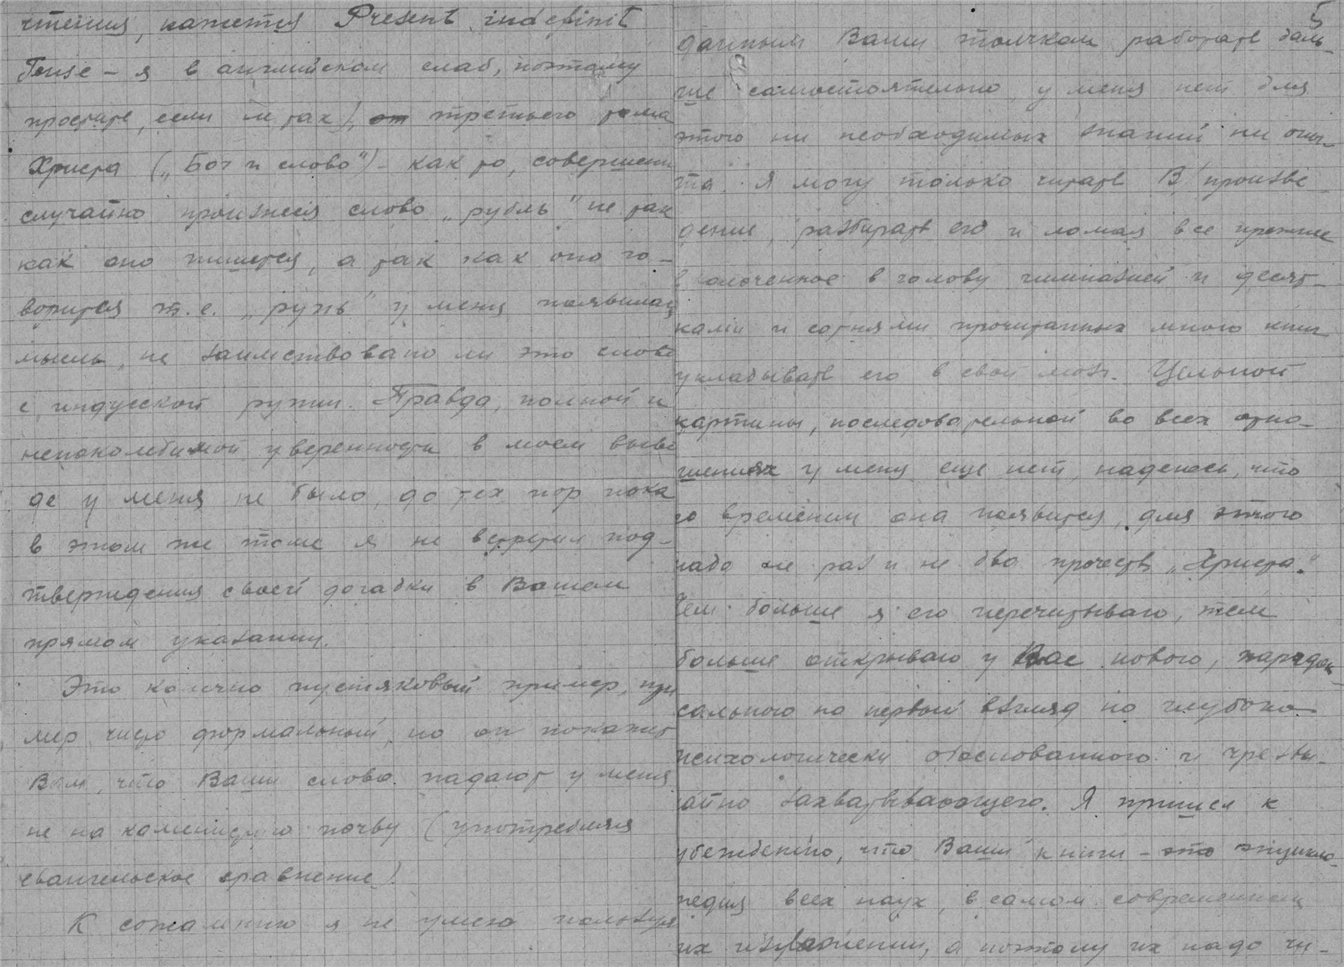 чтения, кажется Present indefinit
Tense – я в английском слаб, поэтому
простите, если не так), от третьего тома
Христа („Бог и слово") – как то, совершенно
случайно произнеся слово „рубль" не так
как оно пишется, а так как оно го-
ворится т.е. „рупь" у меня появилась
мысль, не заимствовано ли это слово
с индусской рупии. Правда, полной и
непоколебимой уверенности в моем выво
де у меня не было, до тех пор пока
в этом же томе я не встретил под-
тверждения своей догадки в Вашем
прямом указании.
Это конечно пустяковый пример, при
мер чисто формальный, но он покажет
Вам, что Ваши слова падают у меня
не на каменистую почву (употребляя
евангельское сравнение).
К сожалению я не умею пользуясь
5
данным Вами толчком работать даль-
ше самостоятельно, у меня нет для
этого ни необходимых знаний ни опы-
та. Я могу только читать В/произве-
дение, разбирать его и ломая все прежнее
вколоченное в голову гимназией и десят-
ками и сотнями прочитанных много книг
укладывать его в свой мозг. Цельной
картины, последовательной во всех отно-
шениях у меня еще нет, надеюсь, что
со временем она появится, для этого
надо не раз и не два прочесть „Христа."
Чем больше я его перечитываю, тем
больше открываю у Вас нового, парадок-
сального на первый взгляд но глубоко
психологически обоснованного и чрезвы-
чайно захватывающего. Я пришел к
убеждению, что Ваши книги – это энцикло-
педия всех наук, в самом современном
их изложении, а поэтому их надо чи-